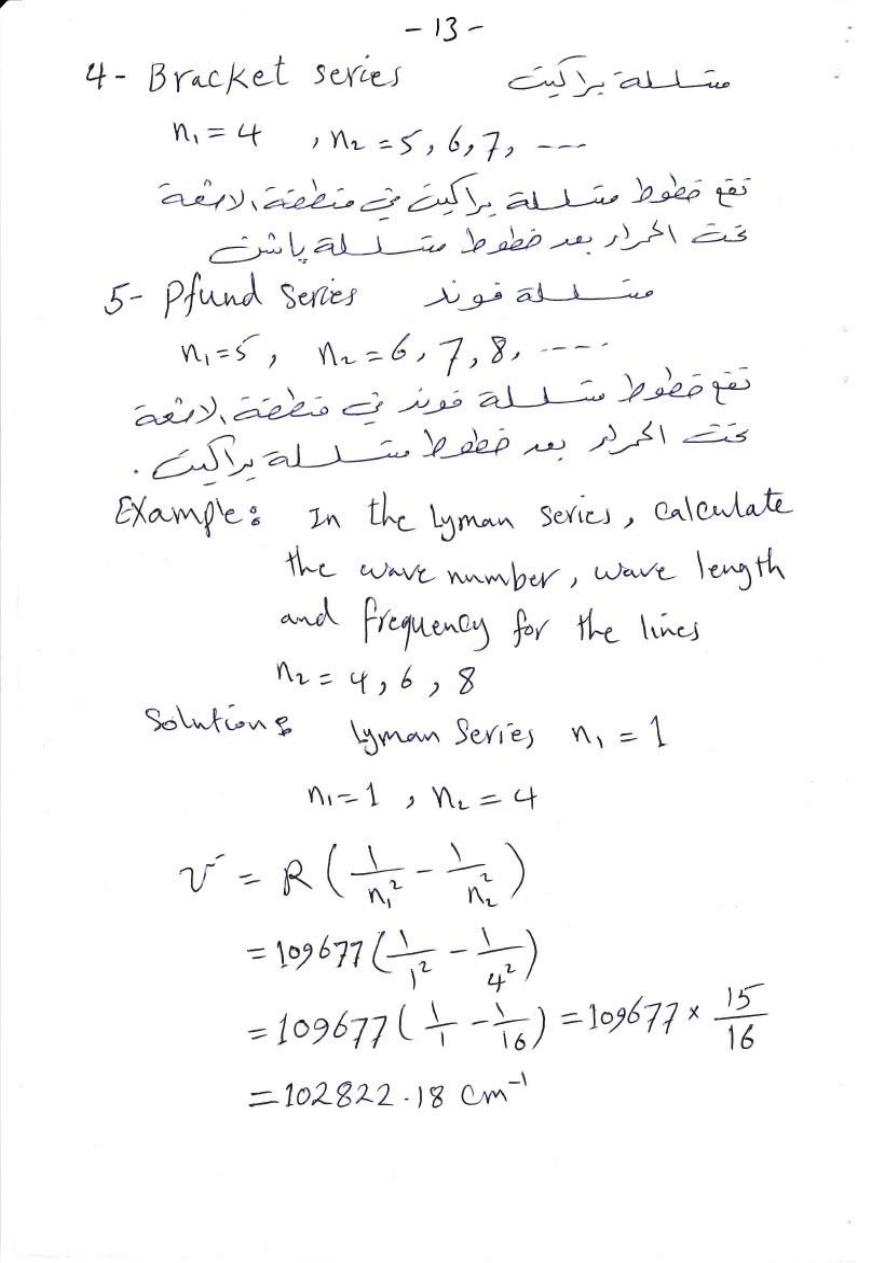 - 13 -
4- Bracket series متسلسلة براكيت
n₁ = 4 , n₂ = 5, 6, 7, ----
تقع خطوط متسلسلة براكيت في منطقة الاشعة
تحت الحمراء بعد خطوط متسلسلة باشن
5- Pfund Series متسلسلة فوند
n₁ = 5 , n₂ = 6, 7, 8, ----
تقع خطوط متسلسلة فوند في منطقة الاشعة
تحت الحمراء بعد خطوط متسلسلة براكيت .
Example: In the Lyman series, calculate
the wave number, wave length
and frequency for the lines
n₂ = 4, 6, 8
Solution: Lyman Series n₁ = 1
n₁ = 1 , n₂ = 4
ν̄ = R (1/n₁² - 1/n₂²)
= 109677 (1/1² - 1/4²)
= 109677 (1/1 - 1/16) = 109677 × 15/16
= 102822.18 cm⁻¹